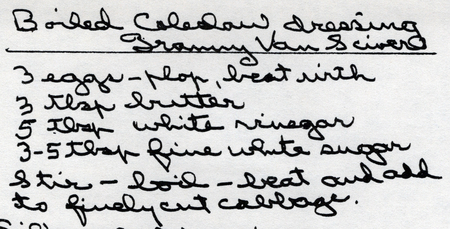 Boiled Coleslaw dressing
Granny Van Sciver
3 eggs - plop, beat with
3 tbsp butter
5 tbsp white vinegar
3-5 tbsp fine white sugar
Stir - boil - beat and add
to finely cut cabbage.